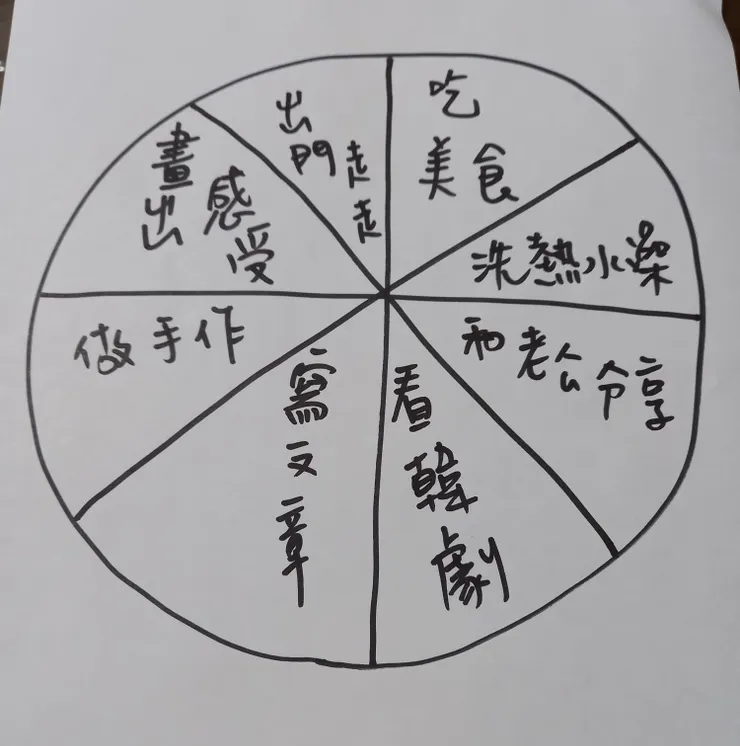 吃
美食
洗熱水澡
和老公分享
看韓劇
寫文章
做手作
畫出
感受
出門
走走